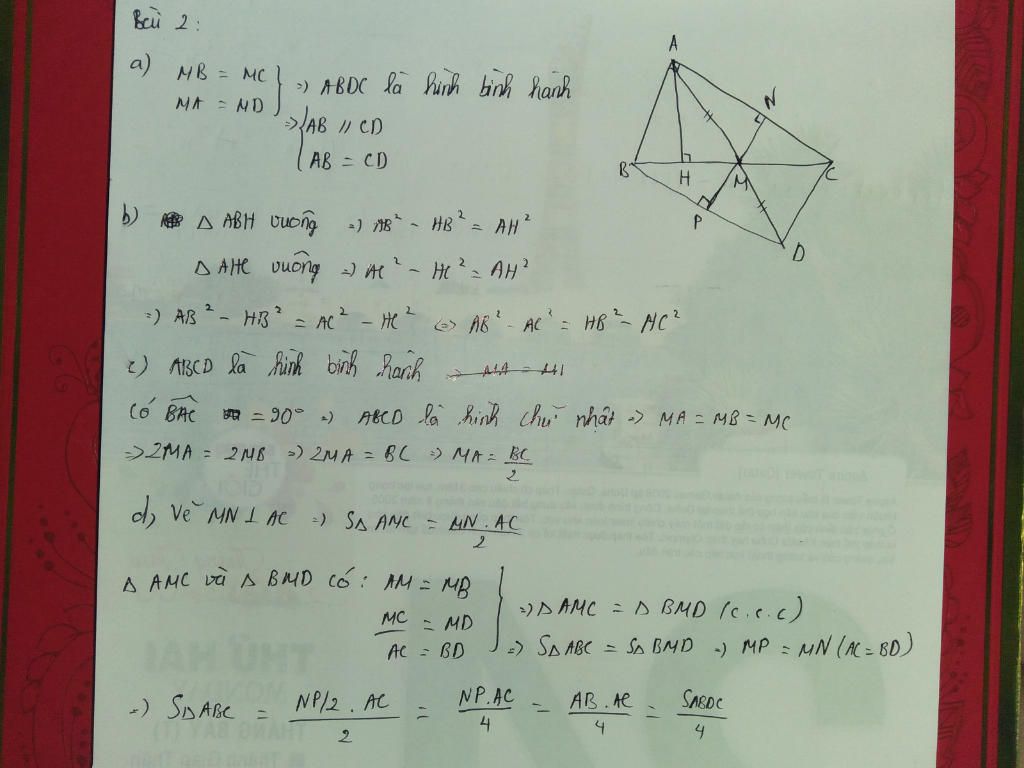 Bài 2:
a) MB = MC
MA = MD } => ABDC là hình bình hành
=> { AB // CD
AB = CD
b) Δ ABH vuông => AB² - HB² = AH²
Δ AHC vuông => AC² - HC² = AH²
=> AB² - HB² = AC² - HC² <=> AB² - AC² = HB² - HC²
c) ABCD là hình bình hành
Có BAC = 90° => ABCD là hình chữ nhật => MA = MB = MC
=> 2MA = 2MB => 2MA = BC => MA = BC/2
d) Vẽ MN ⊥ AC => SΔ AMC = MN . AC / 2
Δ AMC và Δ BMD có: AM = MB
MC = MD
AC = BD
} => Δ AMC = Δ BMD (c.c.c)
=> SΔ ABC = SΔ BMD => MP = MN (AC = BD)
=> SΔABC = NP/2 . AC / 2 = NP.AC / 4 = AB . AC / 4 = SABDC / 4
A
N
B
H
M
C
P
D
THỨ HAI
MONDAY
THÁNG BẢY (T)